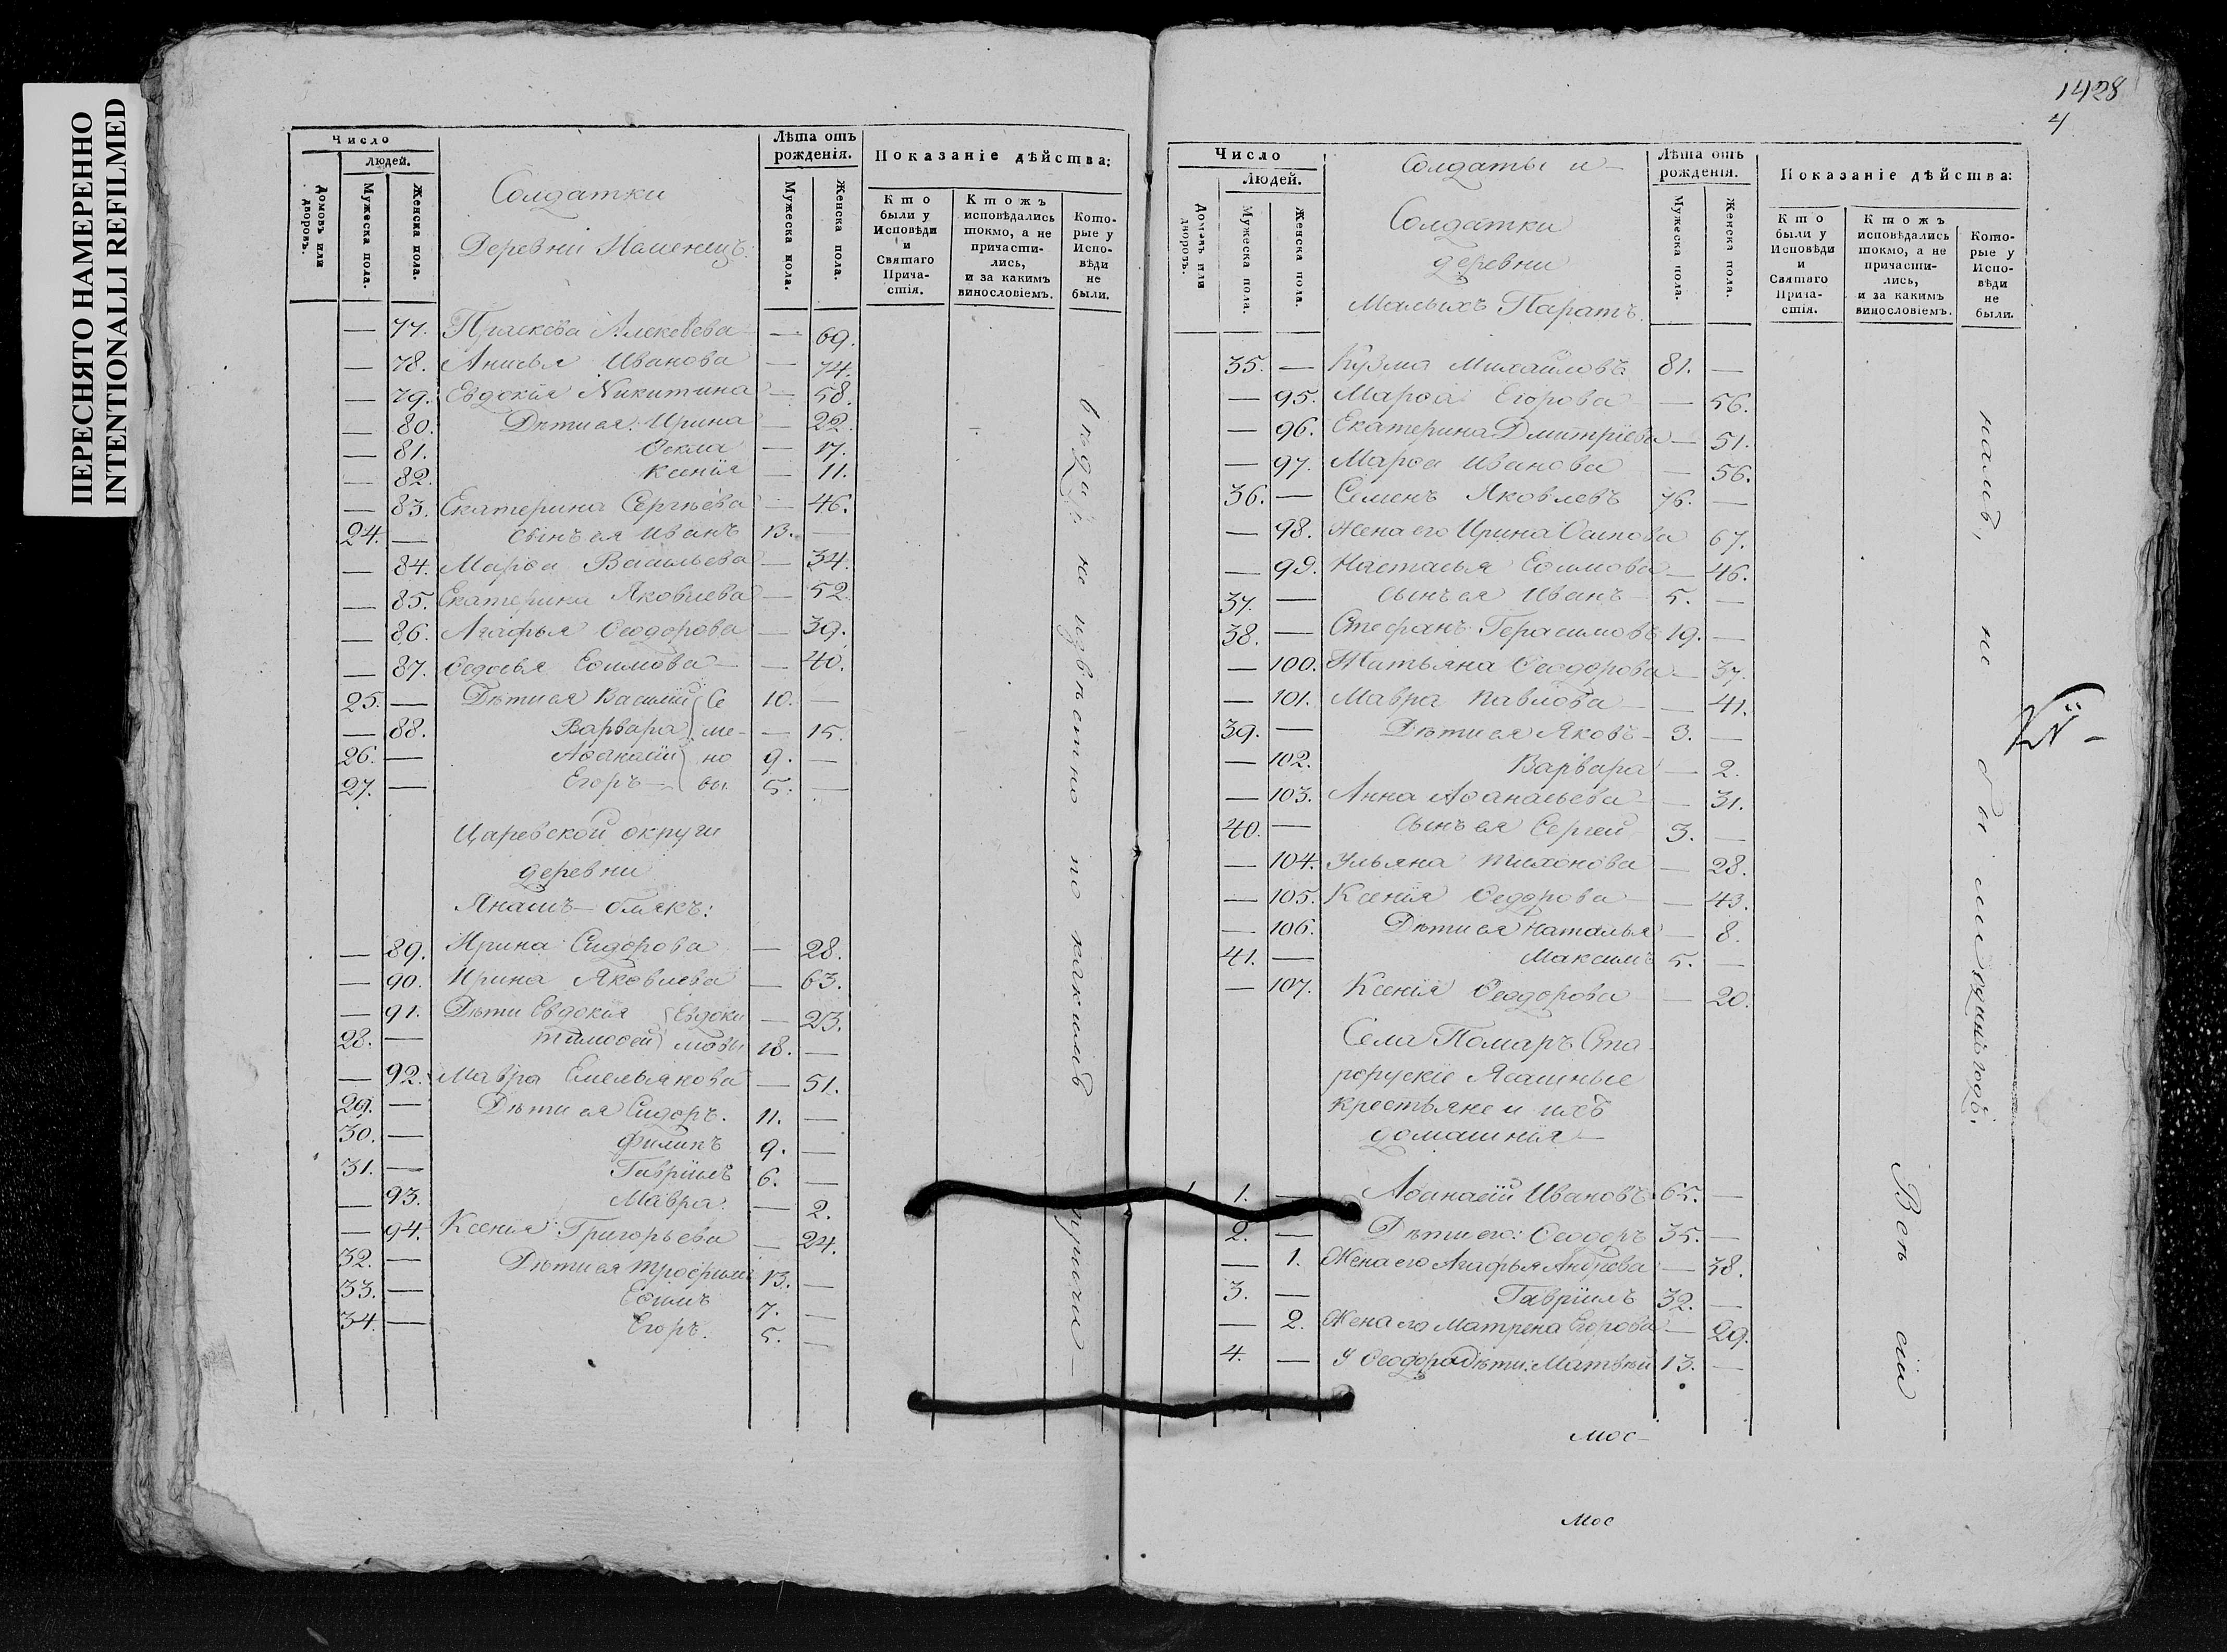 ПЕРЕСНЯТО НАМЕРЕННО
INTENTIONALLI REFILMED
Число
Людей.
Домовъ или дворовъ.
Мужеска пола.
Женска пола.
Солдатки
Деревни
Лѣта отъ рожденія.
Мужеска пола.
Женска пола.
Показаніе дѣйства:
Кто были у Исповѣди и Святаго Прича-стія.
Ктожъ исповѣдались токмо, а не причасти-лись, и за какимъ винословіемъ.
Кото-рые у Испо-вѣди не были.
— 77. Праскева Алексѣева — 69.
— 78. Анисья Иванова — 74.
— 79. Евдокія Никитина — 58.
— 80. Дѣти ея: Ирина — 22.
— 81. Ѳекла — 17.
— 82. Ксенія — 11.
— 83. Екатерина Сергѣева — 46.
24. — Сынъ ея Иванъ 13. —
— 84. Марѳа Васильева — 34.
— 85. Екатерина Яковлева — 52.
— 86. Агафья Ѳеодорова — 39.
— 87. Ѳедосья Еѳимова — 40.
25. — Дѣти ея Василій Се 10. —
— 88. Варвара ме- — 15.
26. — Аѳанасій но 9. —
27. — Егоръ — вы 5. —
Царевской округи
деревни
— 89. Ирина Сидорова — 28.
— 90. Ирина Яковлева — 63.
— 91. Дѣти Евдокія Евдоки — 23.
28. — Тимоѳей мовы 18. —
— 92. Мавра Емельянова — 51.
29. — Дѣти ея Сидоръ. 11. —
30. — Филипъ 9. —
31. — Гавріилъ 6. —
— 93. Мавра. — 2.
— 94. Ксенія Григорьева — 24.
32. — Дѣти ея Трофимъ 13. —
33. — Еѳимъ 7. —
34. — Егоръ. 5. —
неизвѣстно по какимъ
1428
4
Число
Людей.
Домовъ или дворовъ.
Мужеска пола.
Женска пола.
Солдаты и
Солдатки
деревни
Малыхъ Паратъ.
Лѣта отъ рожденія.
Мужеска пола.
Женска пола.
Показаніе дѣйства:
Кто были у Исповѣди и Святаго Прича-стія.
Ктожъ исповѣдались токмо, а не причасти-лись, и за какимъ винословіемъ.
Кото-рые у Испо-вѣди не были.
35. — Кузма Михайловъ 81. —
— 95. Марѳа Егорова — 56.
— 96. Екатерина Дмитріева — 51.
— 97. Марѳа Иванова — 56.
36. — Семенъ Яковлевъ 76. —
— 98. Жена его Ирина Осипова 67.
— 99. Настасья Еѳимова — 46.
37. — Сынъ ея Иванъ 5. —
38. — Стефанъ Герасимовъ 19. —
— 100. Татьяна Ѳеодорова — 37.
— 101. Мавра Павлова — 41.
39. — Дѣти ея Яковъ 3. —
— 102. Варвара — 2.
— 103. Анна Аѳанасьева — 31.
40. — Сынъ ея Сергей 3. —
— 104. Ульяна Тихонова — 28.
— 105. Ксенія Ѳедорова — 43.
— 106. Дѣти ея Наталья — 8.
41. — Максимъ 5. —
— 107. Ксенія Ѳеодорова — 20.
Села Помаръ Ста-
рорускіе Ясашные
крестьяне и ихъ
домашнія —
1 1. — Аѳанасій Ивановъ 65. —
2. — Дѣти его: Ѳеодоръ 35. —
— 1. Жена его Агафья Андреева — 38.
3. — Гавріилъ 32. —
— 2. Жена его Матрена Егорова — 29.
4. — У Ѳеодора дѣти: Матвѣй 13. —
не были одинъ годъ.
Всѣ сіи
Мос-
Мос